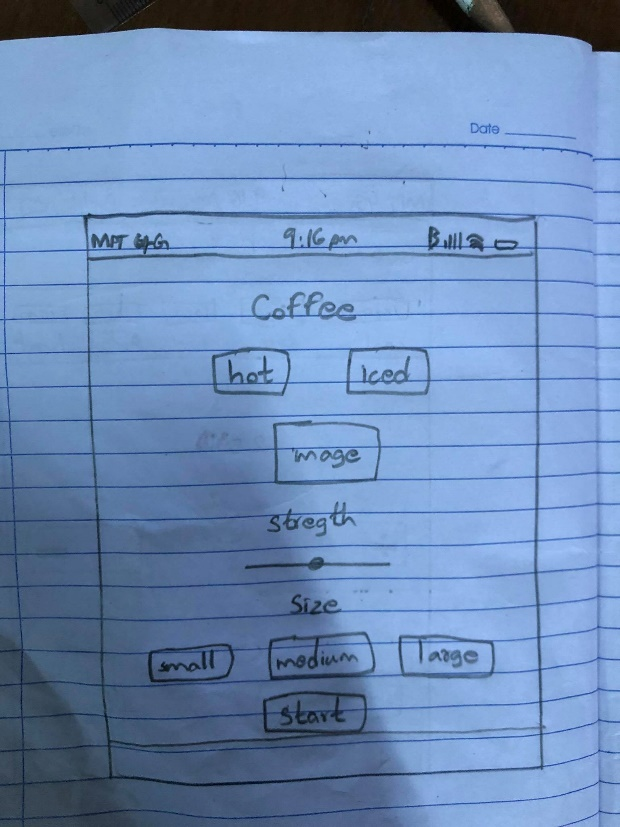 Date
MPT 4G 9:16 pm
Coffee
hot iced
image
stregth
Size
small medium large
start